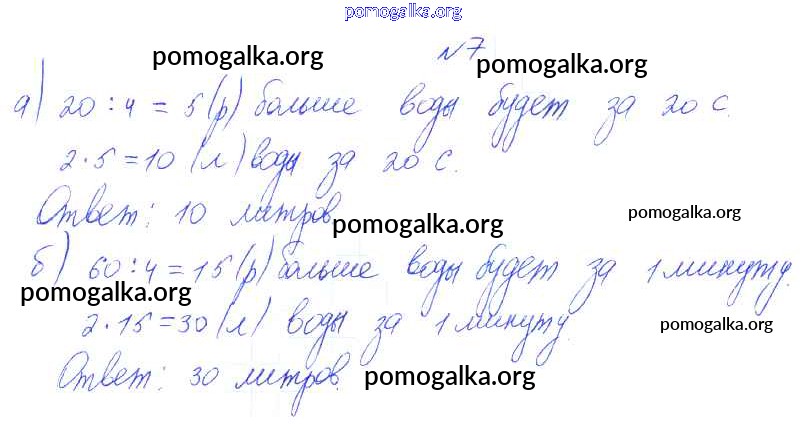 pomogalka.org
№7
pomogalka.org
pomogalka.org
а) 20 : 4 = 5 (р) больше воды будет за 20 с.
2 · 5 = 10 (л) воды за 20 с.
Ответ: 10 литров
pomogalka.org
pomogalka.org
б) 60 : 4 = 15 (р) больше воды будет за 1 минуту.
pomogalka.org
2 · 15 = 30 (л) воды за 1 минуту.
pomogalka.org
Ответ: 30 литров.
pomogalka.org